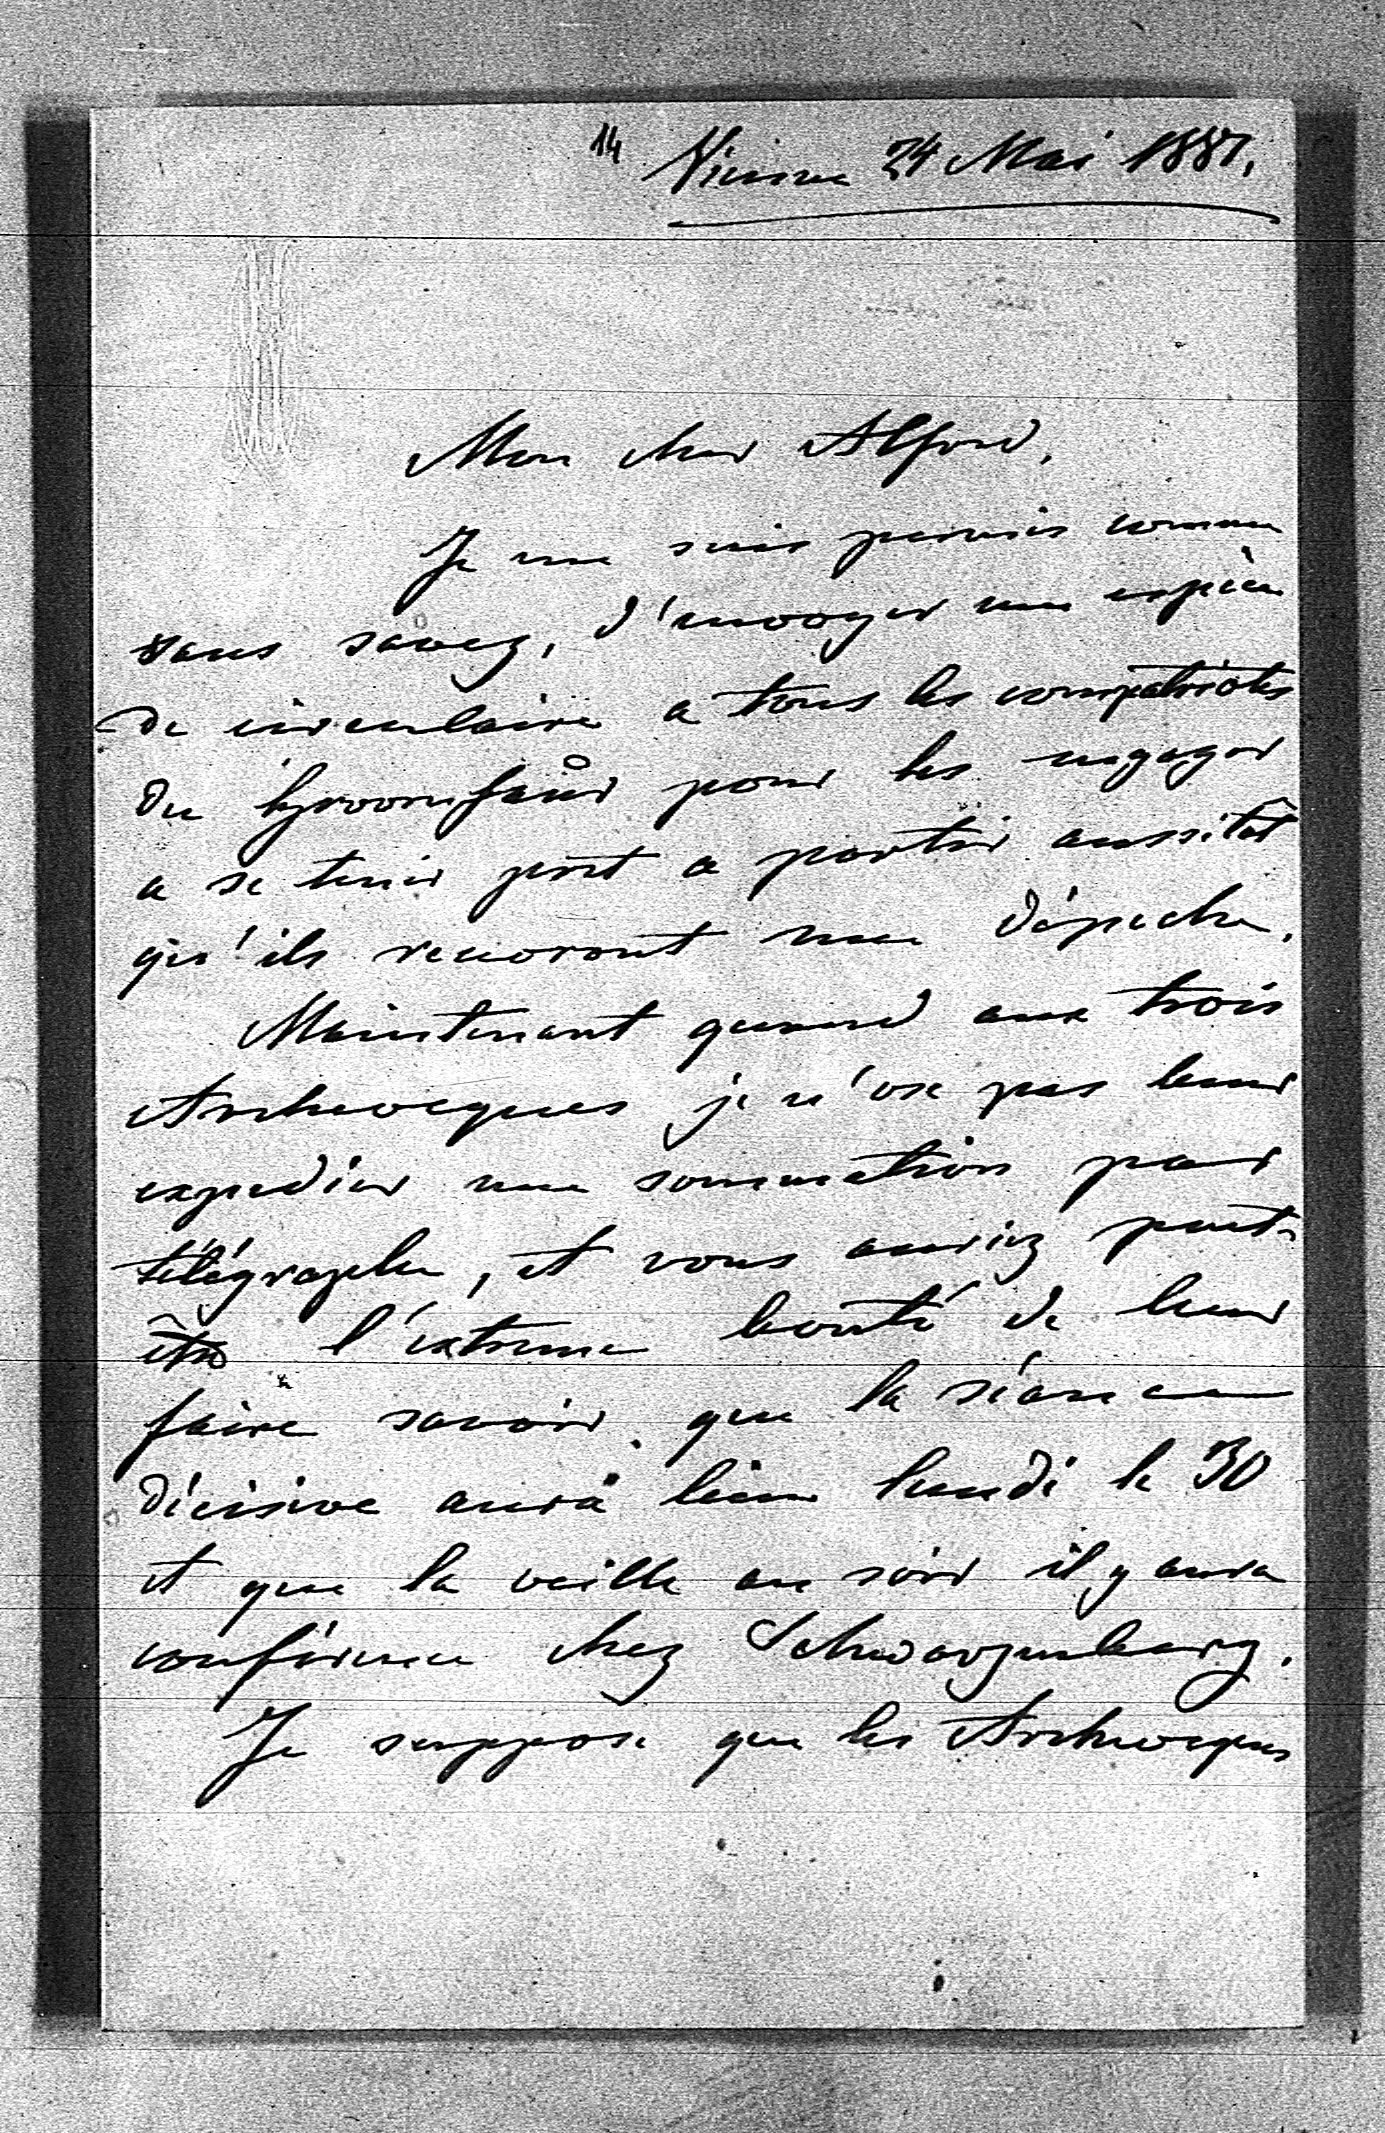 14 Vienne 24 Mai 1881.
Mon cher Alfred,
Je me suis permis comme
vous savez, d'envoyer une espèce
de circulaire a tous les compatriotes
du pour les engager
a se tenir pret a partir aussitôt
qu'ils recevront une dépeche.
Maintenant quand aux trois
Archeveques je n'ose pas leur
expedier une sommation par
télégraphe, et vous auriez peut-
être l'extreme bonté de leur
faire savoir que la séance
décisive aura lieu lundi le 30
et que la veille au soir il y aura
conférence chez Schwarzenberg.
Je suppose que les Archeveques